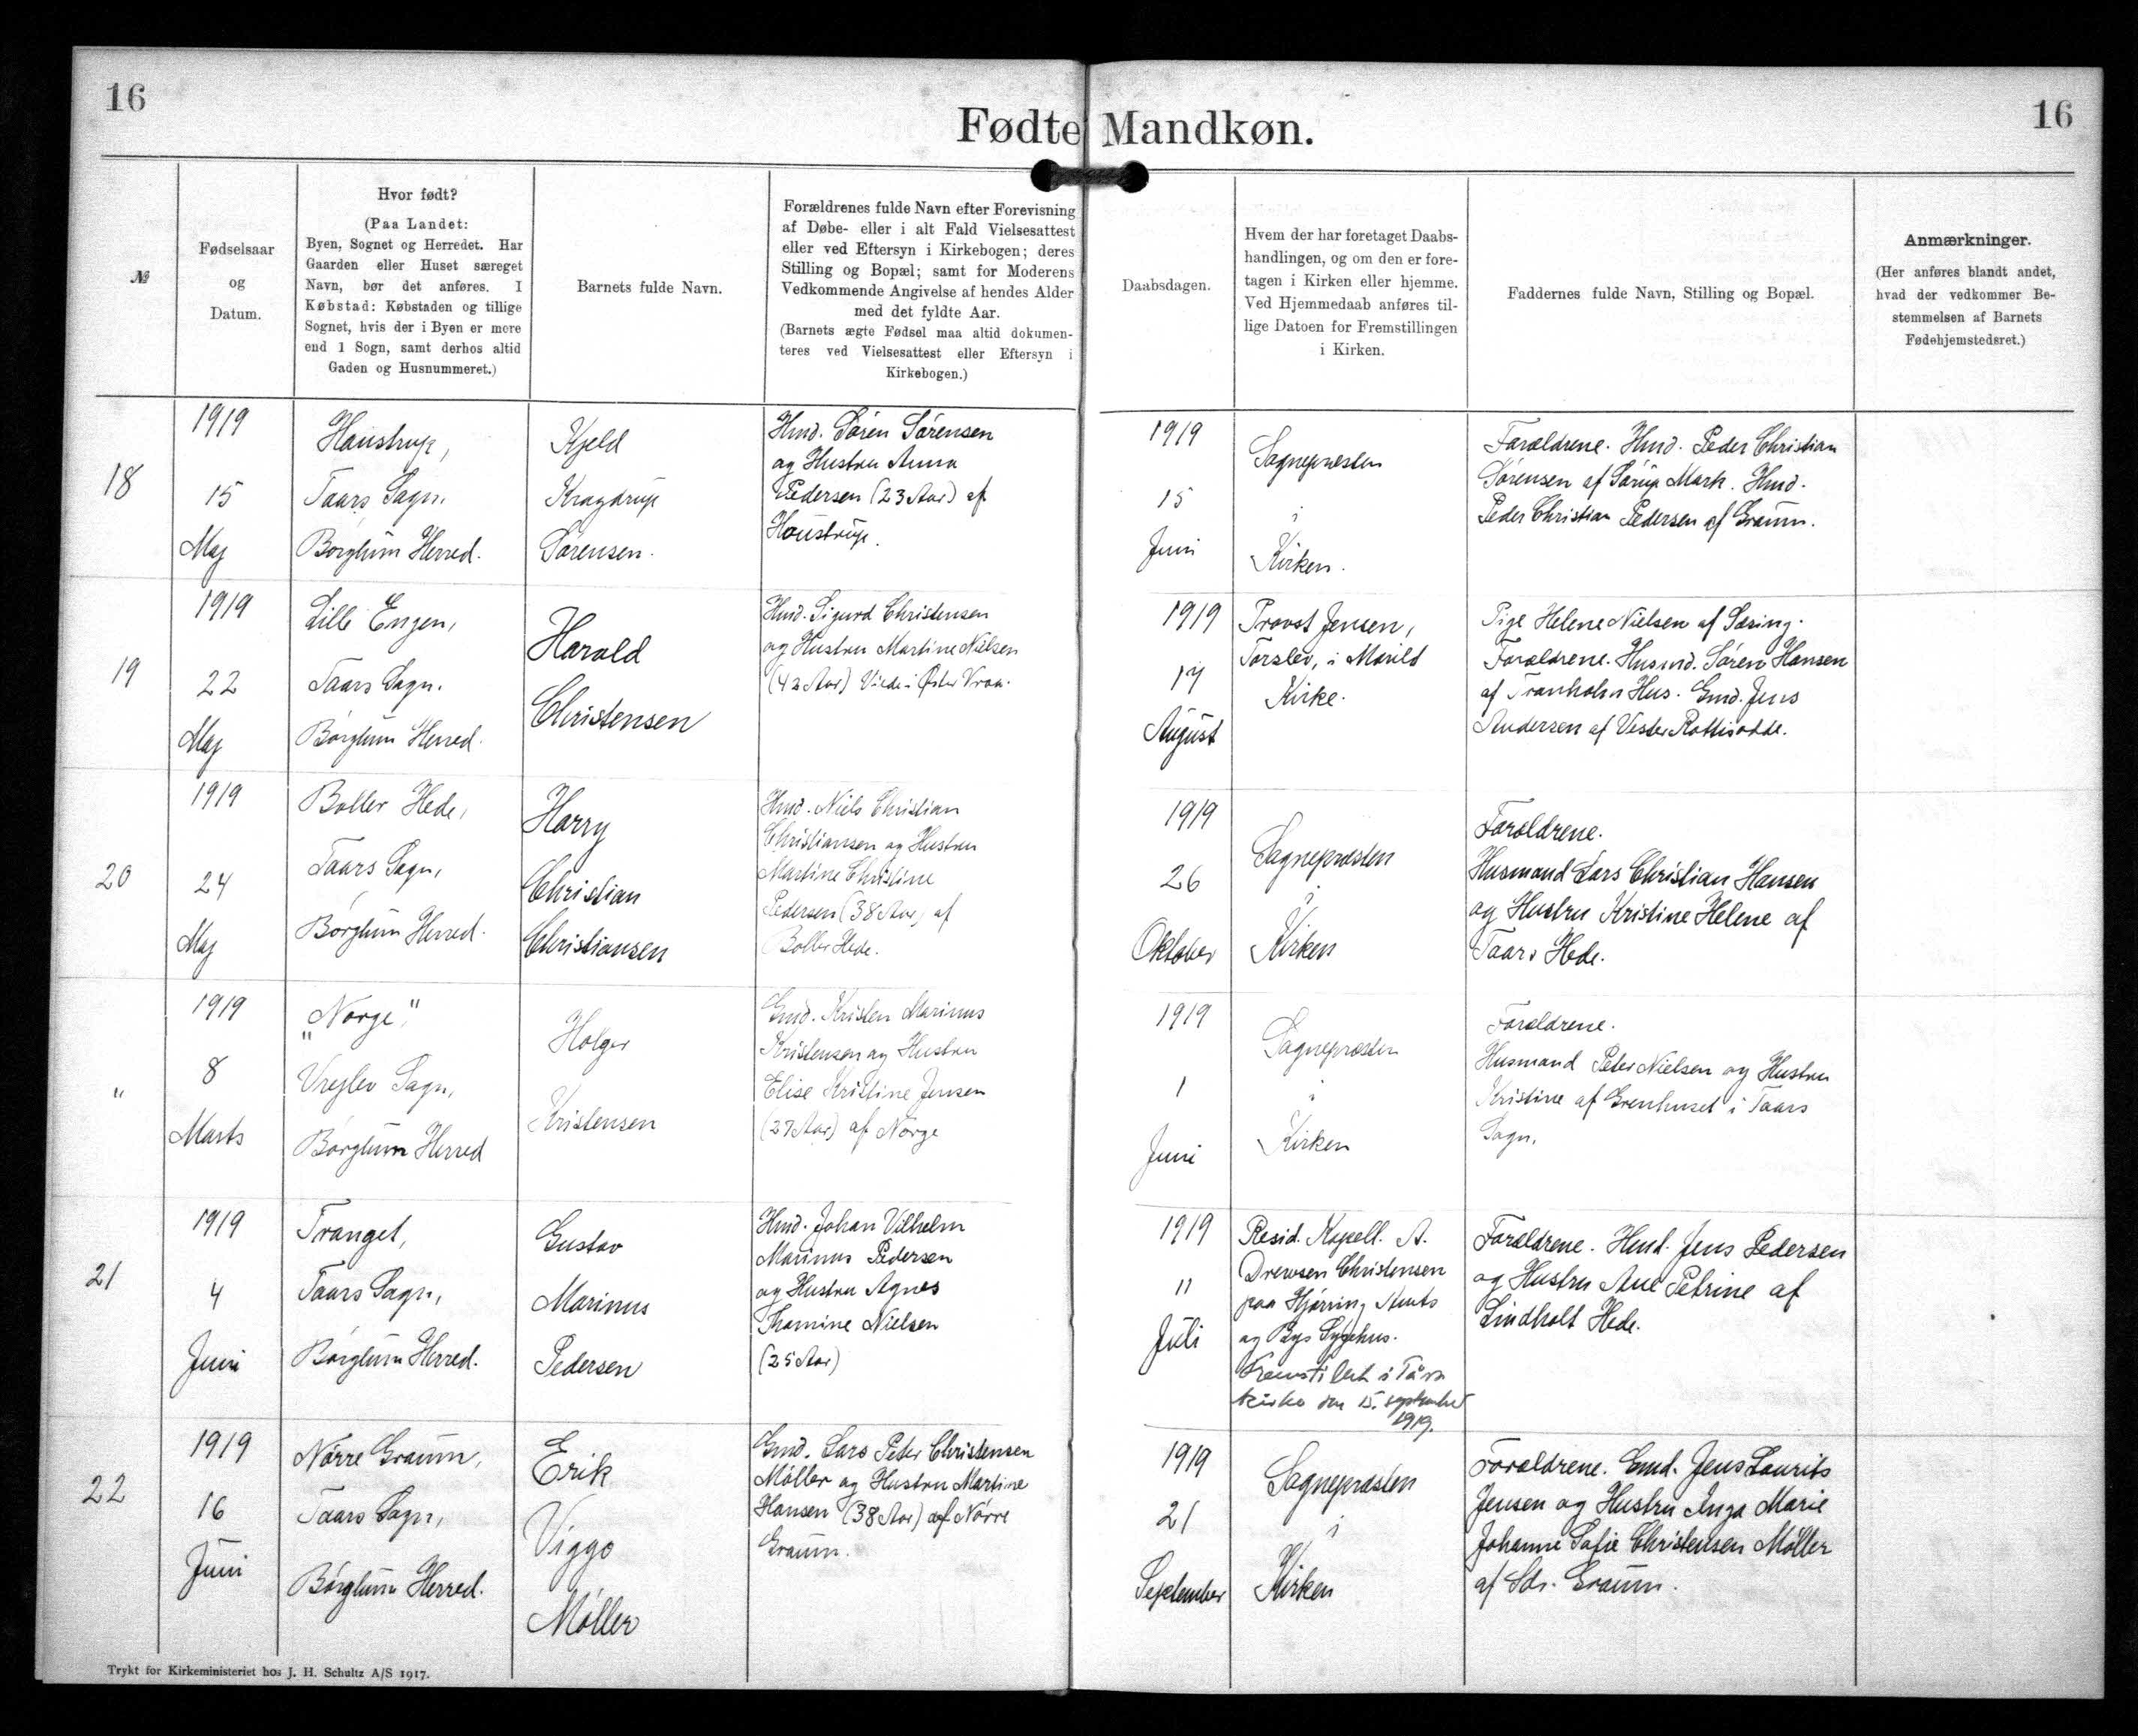 16
16
Fødte Mandkøn.
№
Fødselsaar
og
Datum.
Hvor født?
(Paa Landet:
Byen, Sognet og Herredet. Har
Gaarden eller Huset særeget
Navn, bør det anføres. I
Købstad: Købstaden og tillige
Sognet, hvis der i Byen er mere
end 1 Sogn, samt derhos altid
Gaden og Husnummeret.)
Barnets fulde Navn.
Forældrenes fulde Navn efter Forevisning
af Døbe- eller i alt Fald Vielsesattest
eller ved Eftersyn i Kirkebogen; deres
Stilling og Bopæl; samt for Moderens
Vedkommende Angivelse af hendes Alder
med det fyldte Aar.
(Barnets ægte Fødsel maa altid dokumen-
teres ved Vielsesattest eller Eftersyn i
Kirkebogen.)
Daabsdagen.
Hvem der har foretaget Daabs-
handlingen, og om den er fore-
tagen i Kirken eller hjemme.
Ved Hjemmedaab anføres til-
lige Datoen for Fremstillingen
i Kirken.
Faddernes fulde Navn, Stilling og Bopæl.
Anmærkninger.
(Her anføres blandt andet,
hvad der vedkommer Be-
stemmelsen af Barnets
Fødehjemstedsret.)
18
1919
15
Maj
Houstrup,
Taars Sogn,
Børglum Herred.
Kjeld
Kragdrup
Sørensen.
Hmd. Søren Sørensen
og Hustru Anna
Pedersen (23 Aar) af
Houstrup.
1919
15
Juni
Sognepræsten
i
Kirken.
Forældrene. Hmd. Peder Christian
Sørensen af Sørup Mark. Hmd.
Peder Christian Pedersen af Graum.
19
1919
22
Maj
Lille Engen,
Taars Sogn.
Børglum Herred.
Harald
Christensen
Hmd. Sigurd Christensen
og Hustru Martine Nielsen
(42 Aar) Viede i Øster Vraa.
1919
17
August
Provst Jensen,
Torslev, i Morild
Kirke.
Pige Helene Nielsen af Sæsing.
Forældrene. Husmd. Søren Hansen
af Tranholm Hus. Gmd. Jens
Andersen af Vester
20
1919
24
Maj
Boller Hede,
Taars Sogn,
Børglum Herred.
Harry
Christian
Christiansen
Hmd. Niels Christian
Christiansen og Hustru
Martine Christine
Pedersen (38 Aar) af
Boller Hede.
1919
26
Oktober
Sognepræsten
i
Kirken
Forældrene.
Husmand Lars Christian Hansen
og Hustru Kristine Helene af
Taars Hede.
"
1919
8
Marts
"Norge",
Vrejlev Sogn,
Børglum Herred
Holger
Kristensen
Gmd. Kristen Marinus
Kristensen og Hustru
Elise Kristine Jensen
(27 Aar) af Norge
1919
1
Juni
Sognepræsten
i
Kirken
Forældrene.
Husmand Peter Nielsen og Hustru
Kristine af Grenhuset i Taars
Sogn.
21
1919
4
Juni
Tranget,
Taars Sogn,
Børglum Herred.
Gustav
Marinus
Pedersen
Hmd. Johan Vilhelm
Marinus Pedersen
og Hustru Agnes
Thomine Nielsen
(25 Aar)
1919
11
Juli
Resid. Kapell. A.
Drewsen Christensen
paa Hjørring Amts
og Bys Sygehus.
Fremstillet i Tårs
kirke den 15. september
1919.
Forældrene. Hmd. Jens Pedersen
og Hustru Ane Petrine af
Lindholt Hede.
22
1919
16
Juni
Nørre Graum,
Taars Sogn,
Børglum Herred.
Erik
Viggo
Møller
Gmd. Lars Peter Christensen
Møller og Hustru Martine
Hansen (38 Aar) af Nørre
Graum.
1919
21
September
Sognepræsten
i
Kirken
Forældrene. Gmd. Jens Laurits
Jensen og Hustru Inga Marie
Johanne Sofie Christensen Møller
af Sdr. Graum.
Trykt for Kirkeministeriet hos J. H. Schultz A/S 1917.